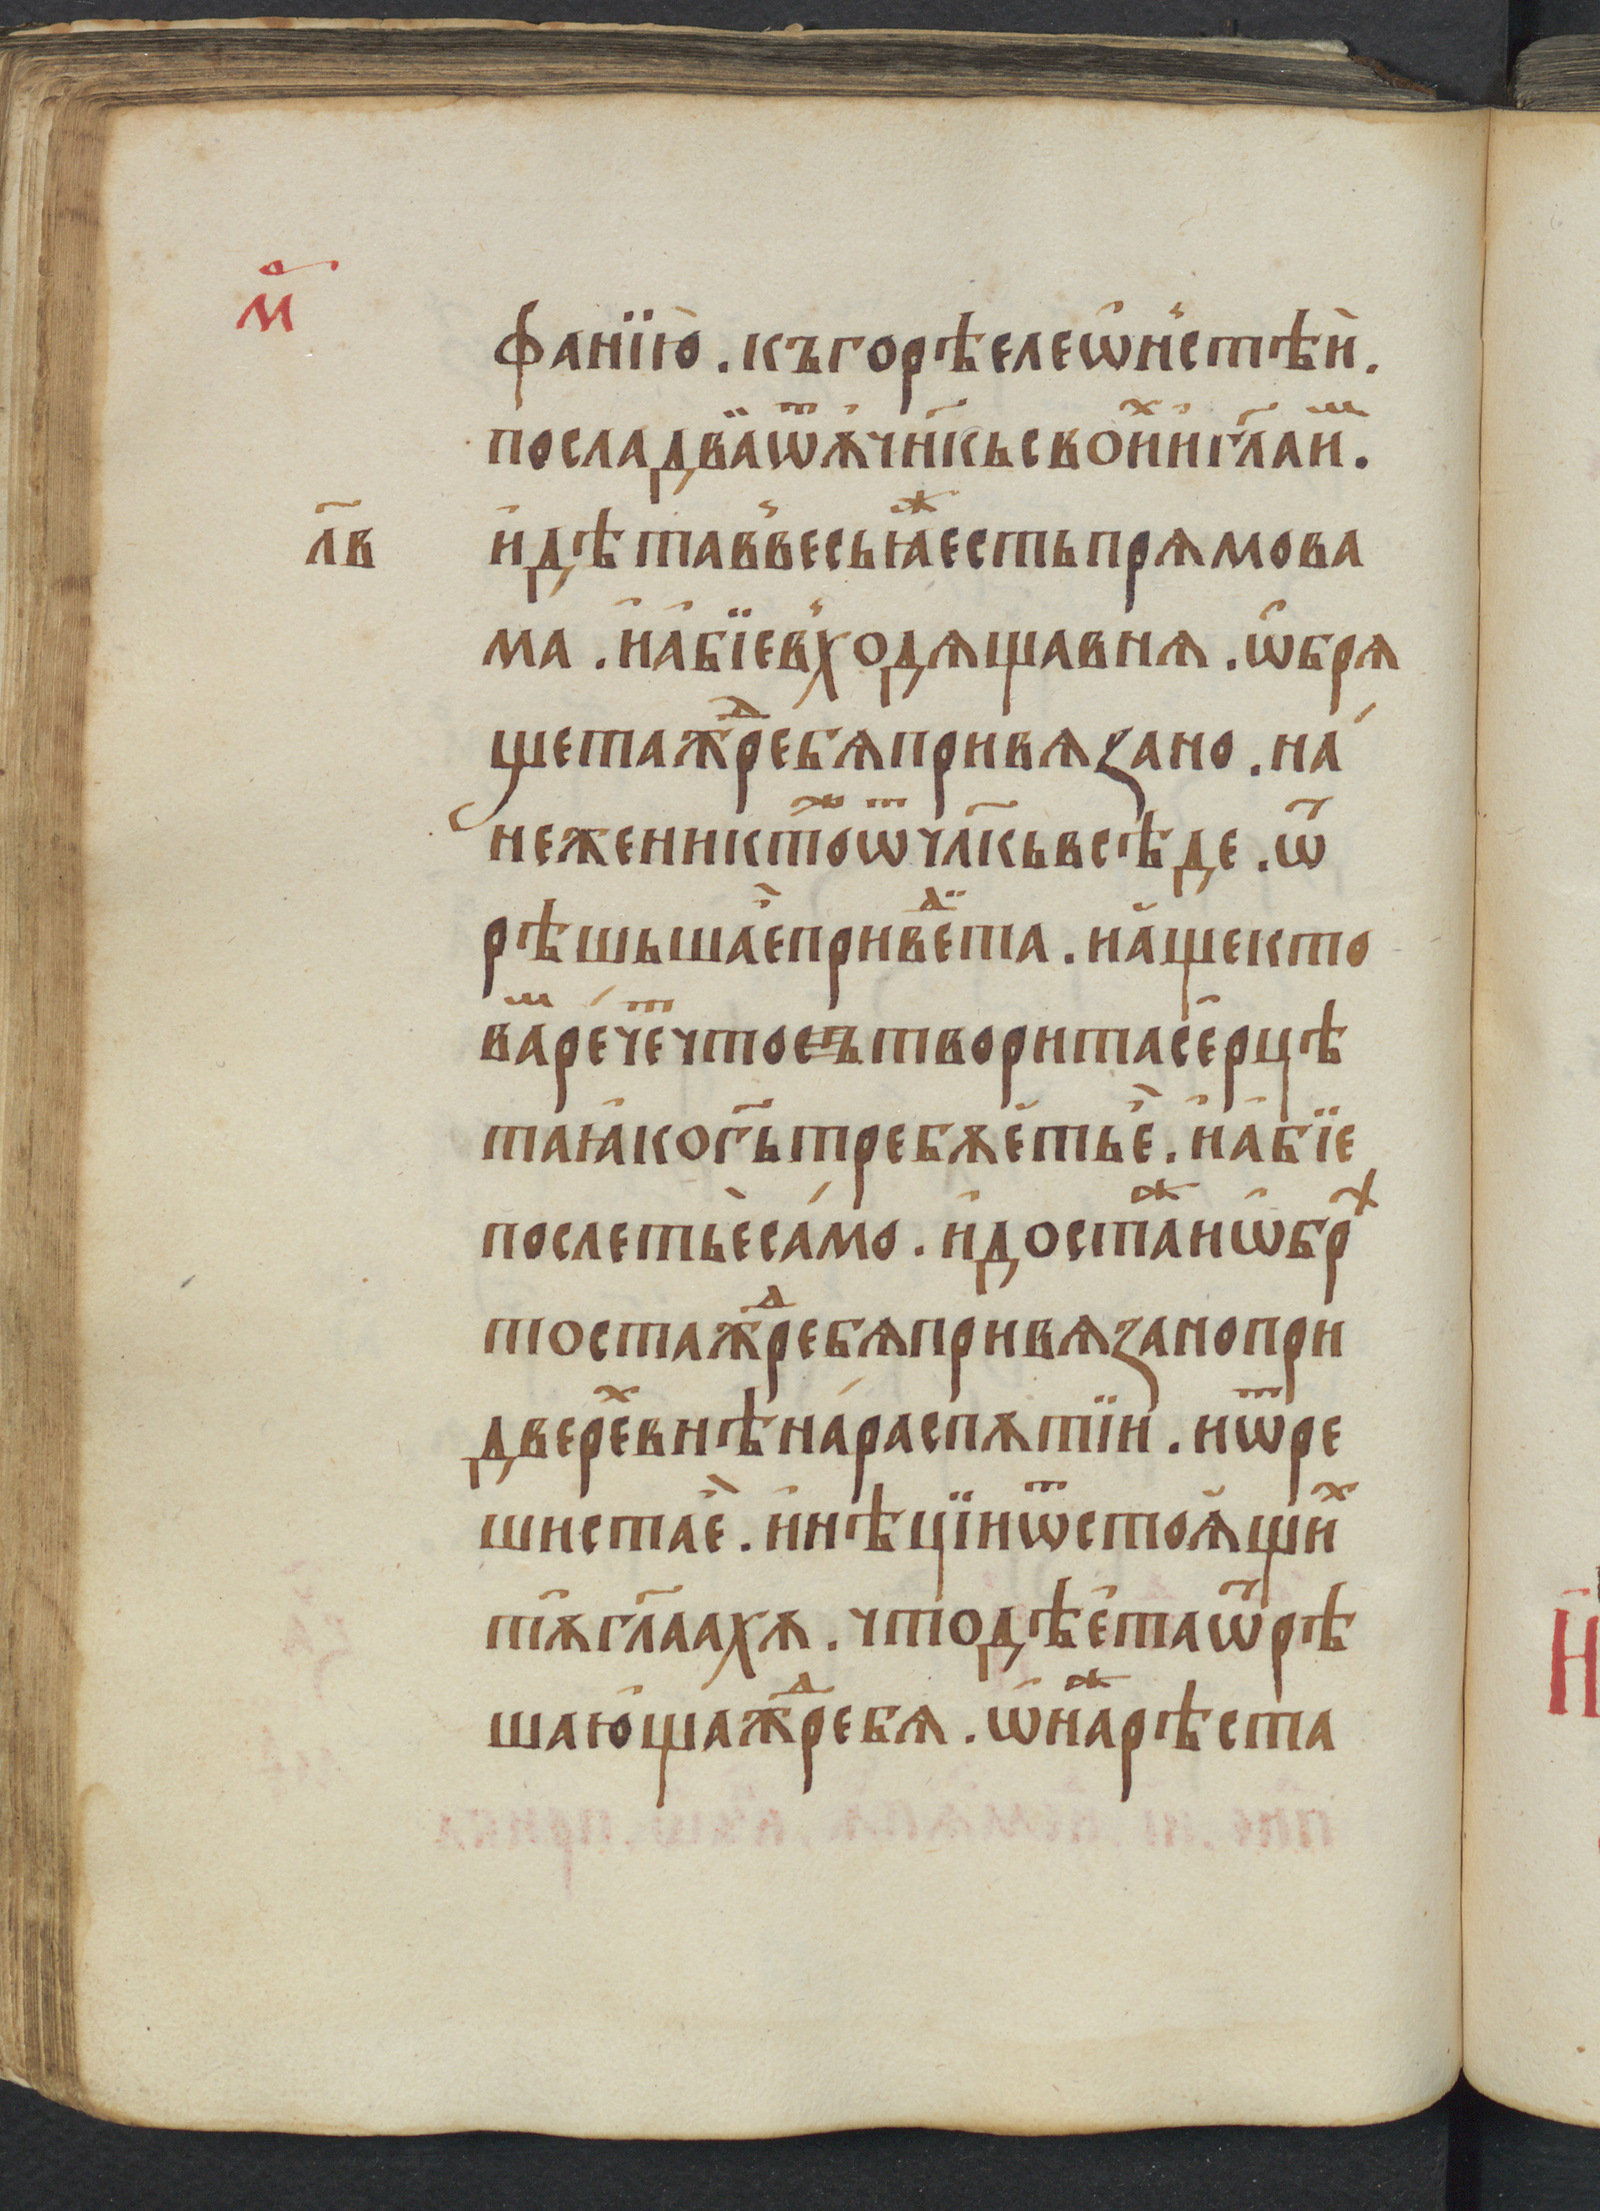 м҃
фанїю̀ . къ горѣ елеѡ̑н́стѣй .
посла два̏ ѿ ѫчн҃кь свои́х и гл҃а и́м .
л҃в
и҆дѣта в весь ꙗ҆же есть прѧмо ва
ма . и҆ а҆бїе в́ходѧща в нѧ . ѡ҆брѧ
щета жребѧ привѧзано . на́
неже никтоже ѿ чл҃кь всѣде . ѿ
рѣшьша є҆̀ приведѣта . и҆ а҆ще кто
вама ре́четь что сътворита се҆ рцѣ
та ꙗ҆ко гь҃ требѫе҆ть є҆̀ . и҆ а҆бїе
послеть є̀ са́мо . и҆доста же и ѡ҆брѣ
тоста жребѧ привѧзано при
дверехь внѣ на́ распѫтїи . и ѿре
шиста є҆̀ . и҆ нѣцїи ѿ стоѧ҆щи́х
тѫ҆ гл҃аахѫ . что дѣе҆та ѿрѣ
шаю҆ща жребѧ . ѡ҆на же рѣста